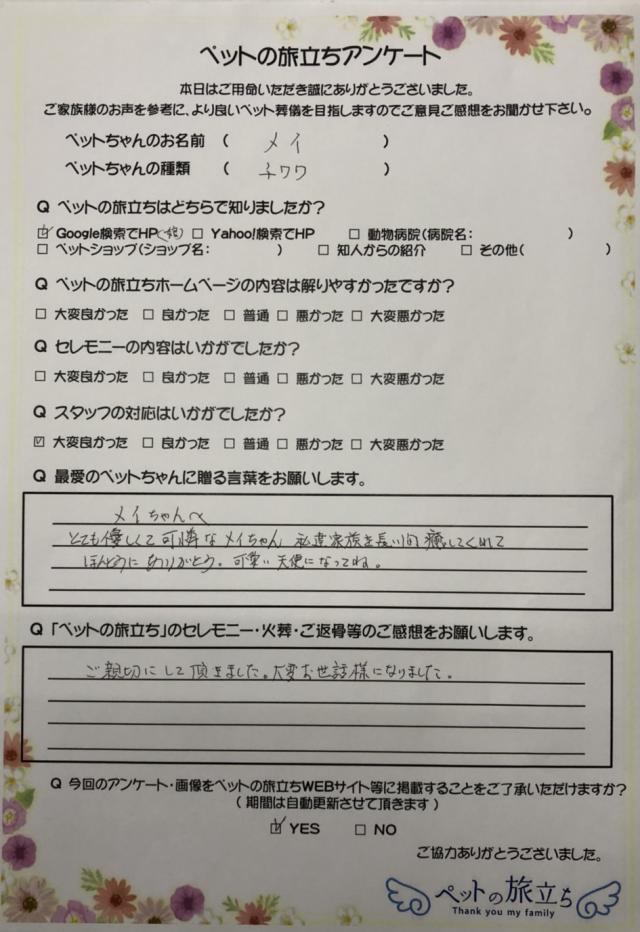 ペットの旅立ちアンケート
本日はご用命いただき誠にありがとうございました。
ご家族様のお声を参考に、より良いペット葬儀を目指しますのでご意見ご感想をお聞かせ下さい。
ペットちゃんのお名前 ( メイ )
ペットちゃんの種類 ( チワワ )
Q ペットの旅立ちはどちらで知りましたか?
☑ Google検索でHP □ Yahoo!検索でHP □ 動物病院(病院名: )
□ ペットショップ(ショップ名: ) □ 知人からの紹介 □ その他( )
Q ペットの旅立ちホームページの内容は解りやすかったですか?
□ 大変良かった □ 良かった □ 普通 □ 悪かった □ 大変悪かった
Q セレモニーの内容はいかがでしたか?
□ 大変良かった □ 良かった □ 普通 □ 悪かった □ 大変悪かった
Q スタッフの対応はいかがでしたか?
☑ 大変良かった □ 良かった □ 普通 □ 悪かった □ 大変悪かった
Q 最愛のペットちゃんに贈る言葉をお願いします。
メイちゃんへ
とても優しくて可憐なメイちゃん 私達家族を長い間癒してくれて
ほんとうにありがとう。可愛い天使になってね。
Q 「ペットの旅立ち」のセレモニー・火葬・ご返骨等のご感想をお願いします。
ご親切にして頂きました。大変お世話様になりました。
Q 今回のアンケート・画像をペットの旅立ちWEBサイト等に掲載することをご了承いただけますか?
( 期間は自動更新させて頂きます )
☑ YES □ NO
ご協力ありがとうございました。
ペットの旅立ち
Thank you my family